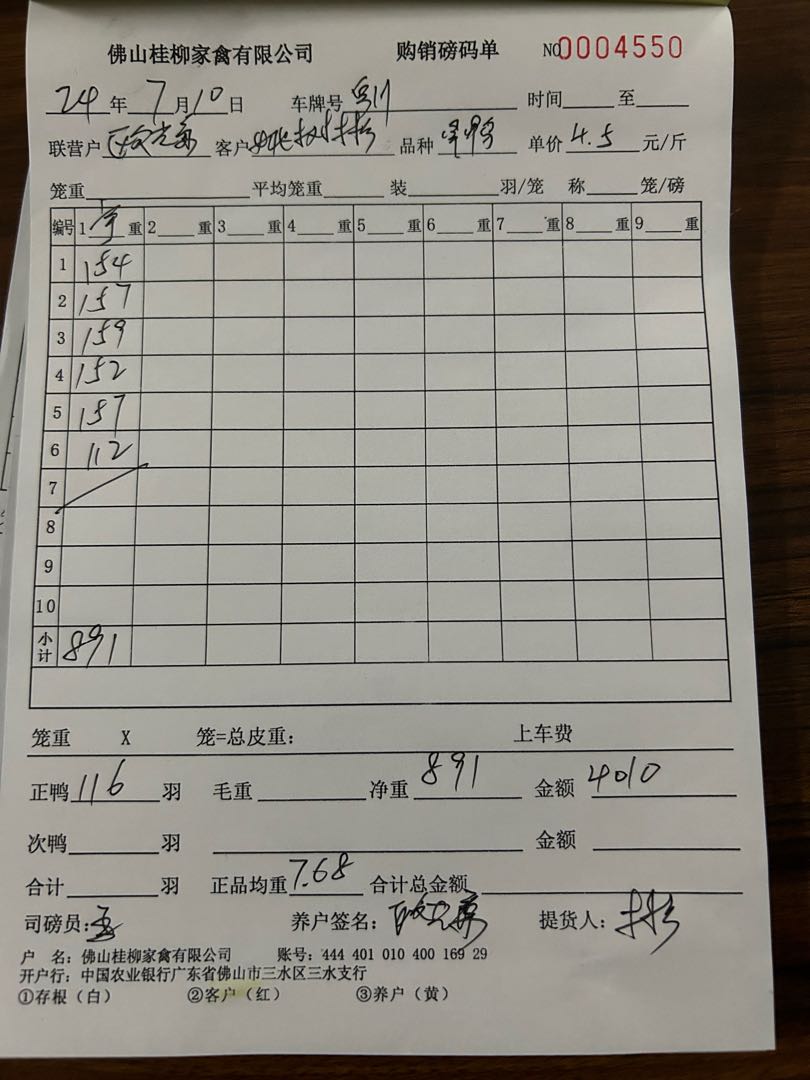 佛山桂柳家禽有限公司 购销磅码单 NO0004550
24年7月10日 车牌号 时间____至____
联营户 客户 品种 单价4.5元/斤
笼重____平均笼重____装____羽/笼 称____笼/磅
编号 1____重 2____重 3____重 4____重 5____重 6____重 7____重 8____重 9____重
1 154
2 157
3 159
4 152
5 157
6 112
7
8
9
10
小计 891
笼重 X 笼=总皮重： 上车费
正鸭116羽 毛重____净重891 金额4010
次鸭____羽 ____ 金额____
合计____羽 正品均重7.68 合计总金额____
司磅员： 养户签名： 提货人：
户 名：佛山桂柳家禽有限公司 账号：444 401 010 400 169 29
开户行：中国农业银行广东省佛山市三水区三水支行
①存根（白） ②客户（红） ③养户（黄）